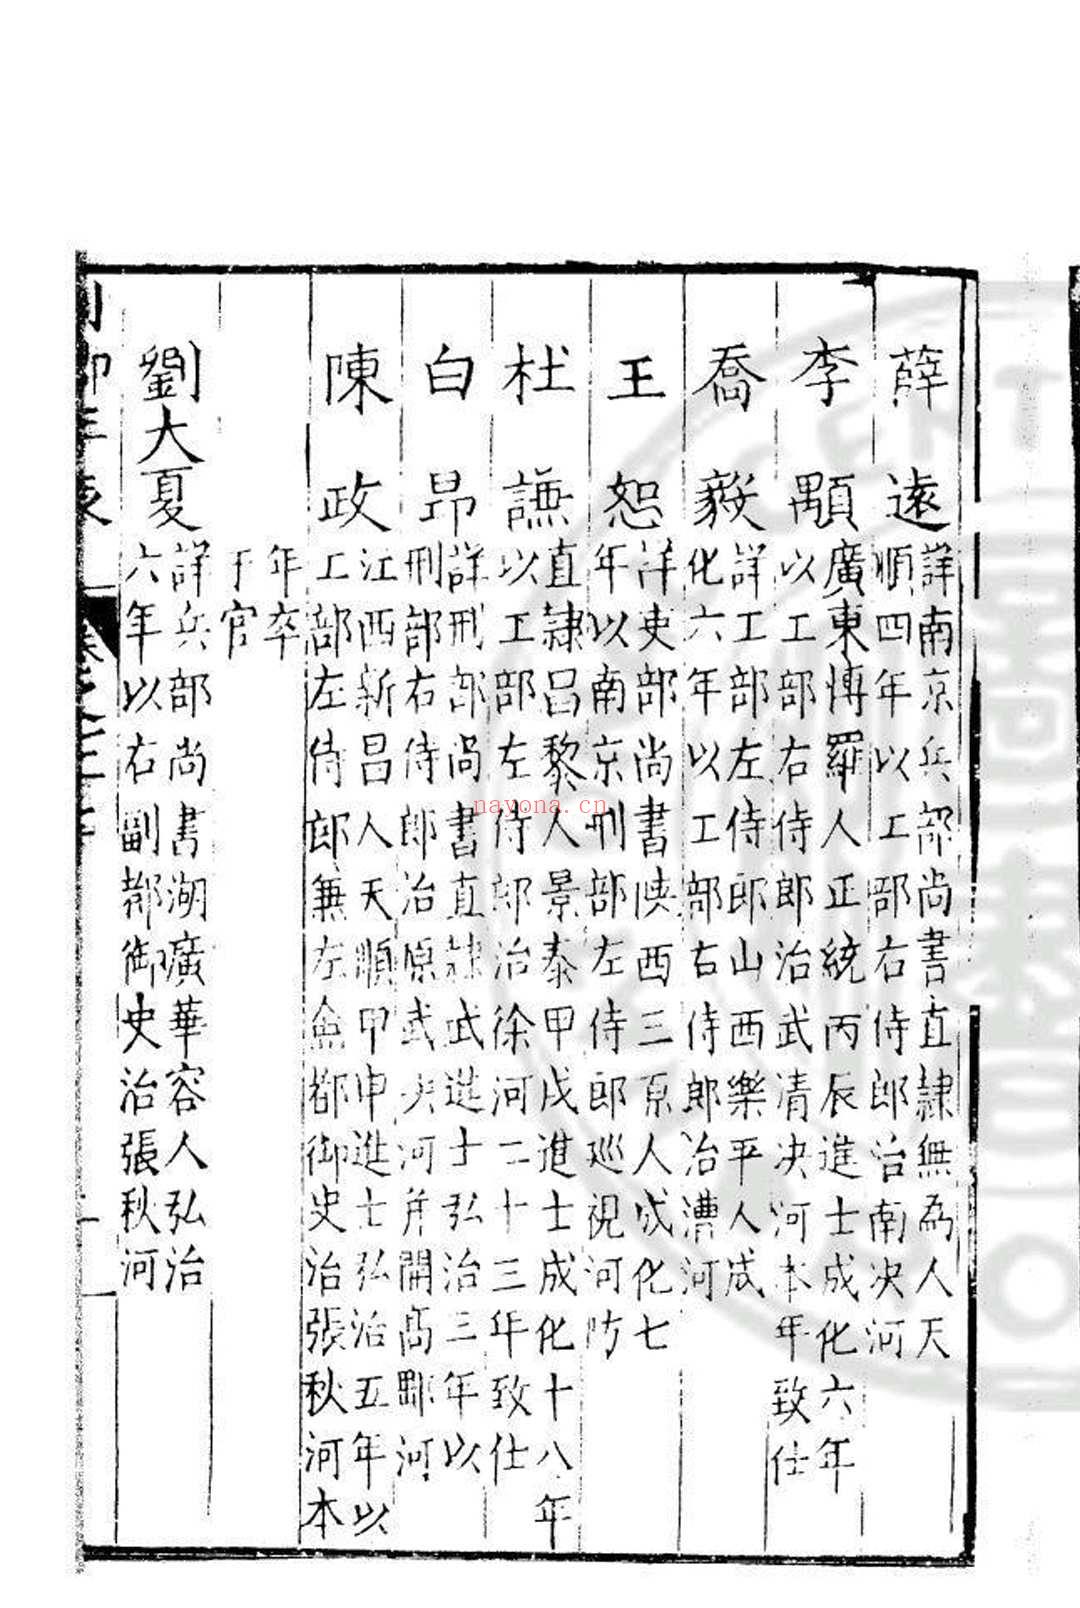 薛遠
詳南京兵部尚書直隷無為人天
順四年以工部右侍郎治南决河
李顒
廣東博羅人正統丙辰進士成化六年
以工部右侍郎治武清决河本年致仕
喬毅
詳工部左侍郎山西樂平人成
化六年以工部右侍郎治漕河
王恕
詳吏部尚書陕西三原人成化七
年以南京刑部左侍郎巡視河防
杜謙
直隷昌黎人景泰甲戌進士成化十八年
以工部左侍郎治徐河二十三年致仕
白昂
詳刑部尚書直隷武進士弘治三年以
刑部右侍郎治原武决河并開高郵河
陳政
江西新昌人天順甲申進士弘治五年以
工部左侍郎兼左僉都御史治張秋河本
年卒
于官
劉大夏
詳兵部尚書湖廣華容人弘治
六年以右副都御史治張秋河
nayona.cn